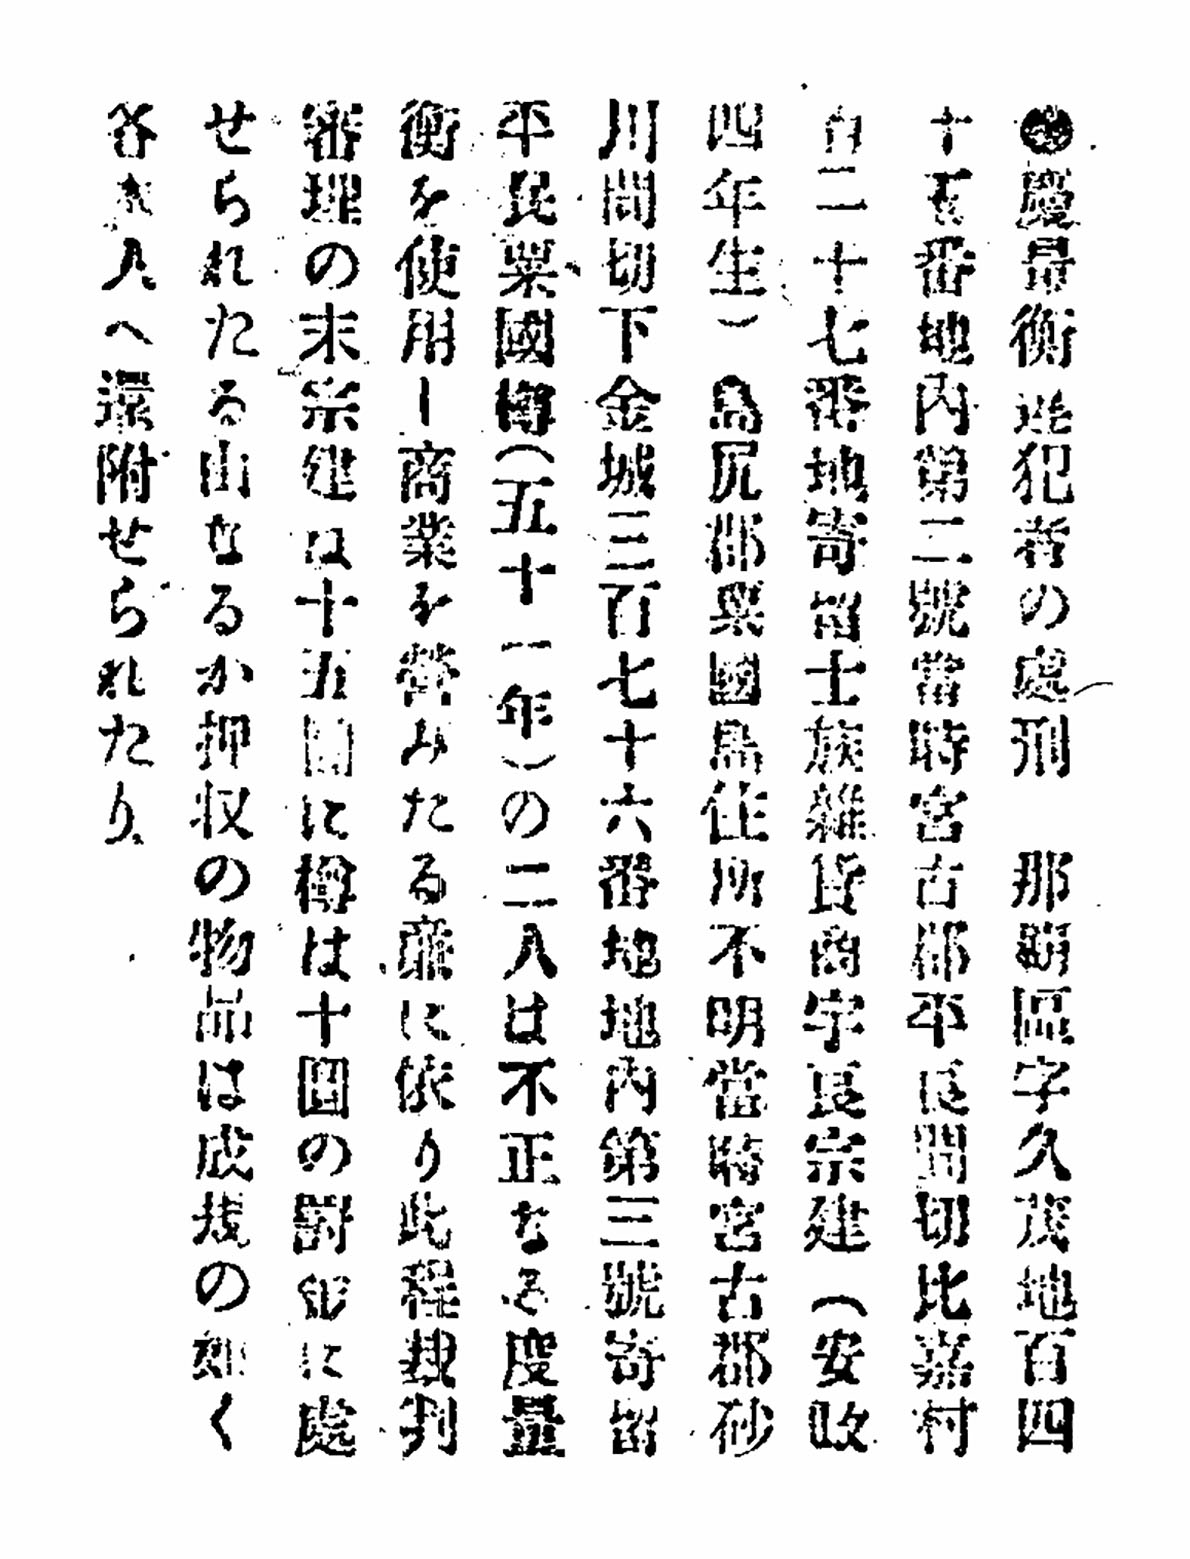 ●度量衡違犯者の處刑　那覇區字久茂地百四
十五番地内第二號當時宮古郡平良間切比嘉村
百二十七番地寄留士族雜貨商宇良宗建（安政
四年生）島尻郡粟國島住所不明當時宮古郡砂
川間切下金城三百七十六番地地内第三號寄留
平民粟國樽（五十一年）の二人は不正なる度量
衡を使用し商業を營みたる廉に依り此程裁判
審理の末宗建は十五圓に樽は十圓の罰金に處
せられたる由なるか押収の物品は成規の如く
各本人へ還附せられたり